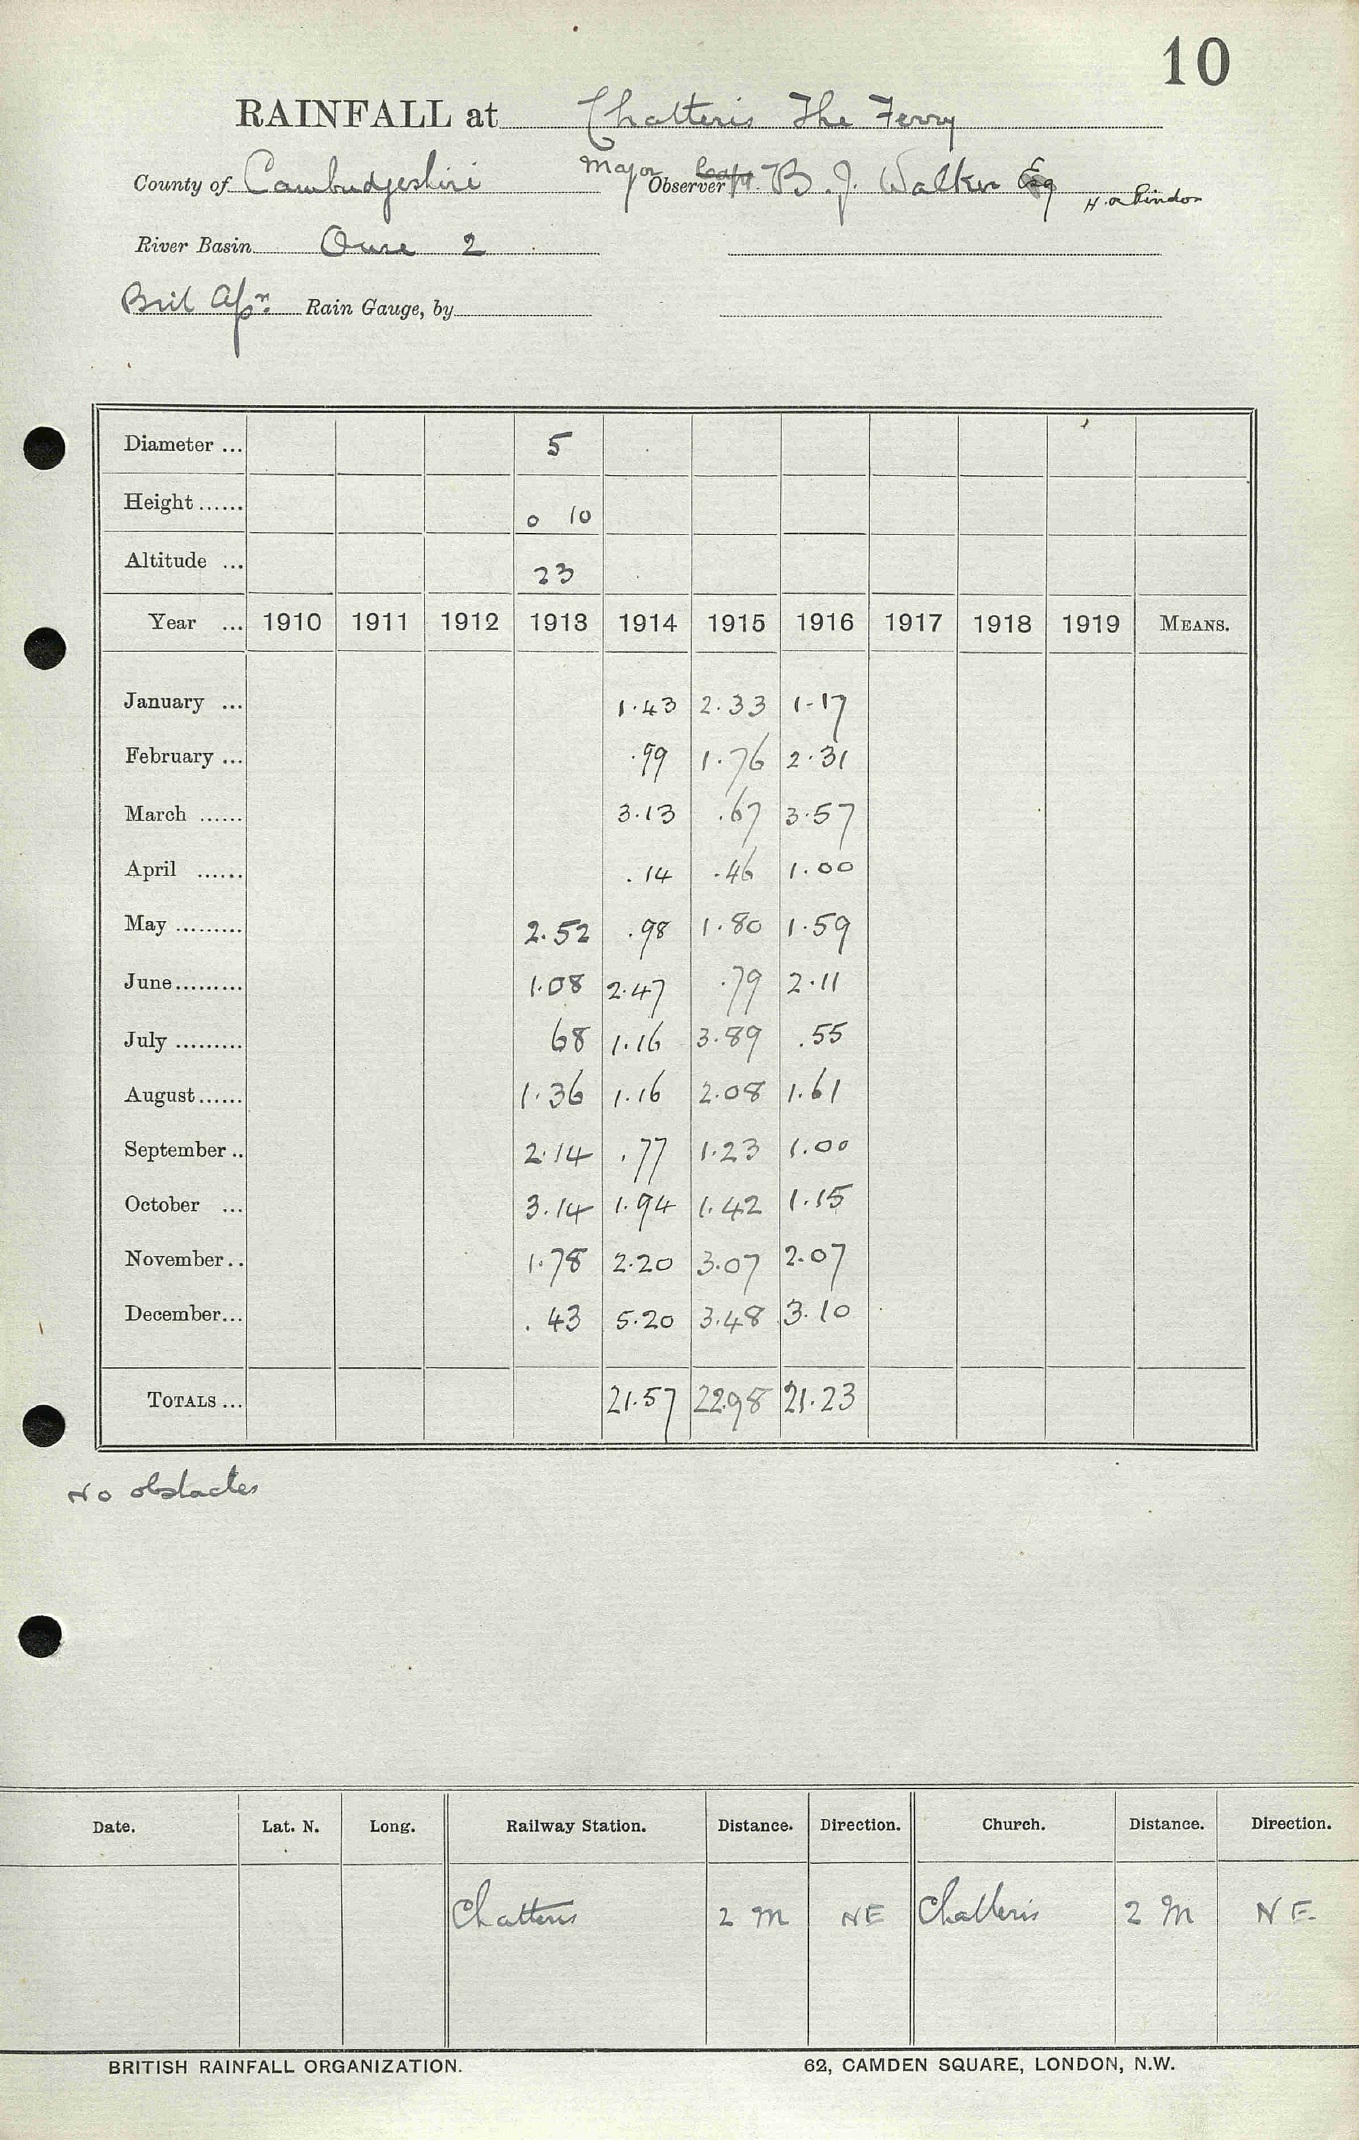 10
RAINFALL at Chatteris The Ferry
County of Cambridgeshire Major Observer Capt. B. J. Walker Esq
River Basin Ouse 2
Brit Assn. Rain Gauge, by
Diameter ... 5
Height ...... 0 10
Altitude ... 23
Year ... 1910 1911 1912 1913 1914 1915 1916 1917 1918 1919 MEANS.
January ... 1.43 2.33 1.17
February ... .99 1.76 2.31
March ...... 3.13 .67 3.57
April ...... .14 .46 1.00
May ......... 2.52 .98 1.80 1.59
June ......... 1.08 2.47 .79 2.11
July ......... 68 1.16 3.89 .55
August ...... 1.36 1.16 2.08 1.61
September .. 2.14 .77 1.23 1.00
October ... 3.14 1.94 1.42 1.15
November .. 1.78 2.20 3.07 2.07
December ... .43 5.20 3.48 3.10
TOTALS ... 21.57 22.98 21.23
No obstacles
Date. Lat. N. Long. Railway Station. Distance. Direction. Church. Distance. Direction.
Chatteris 2 M NE Chatteris 2 M NE.
BRITISH RAINFALL ORGANIZATION. 62, CAMDEN SQUARE, LONDON, N.W.